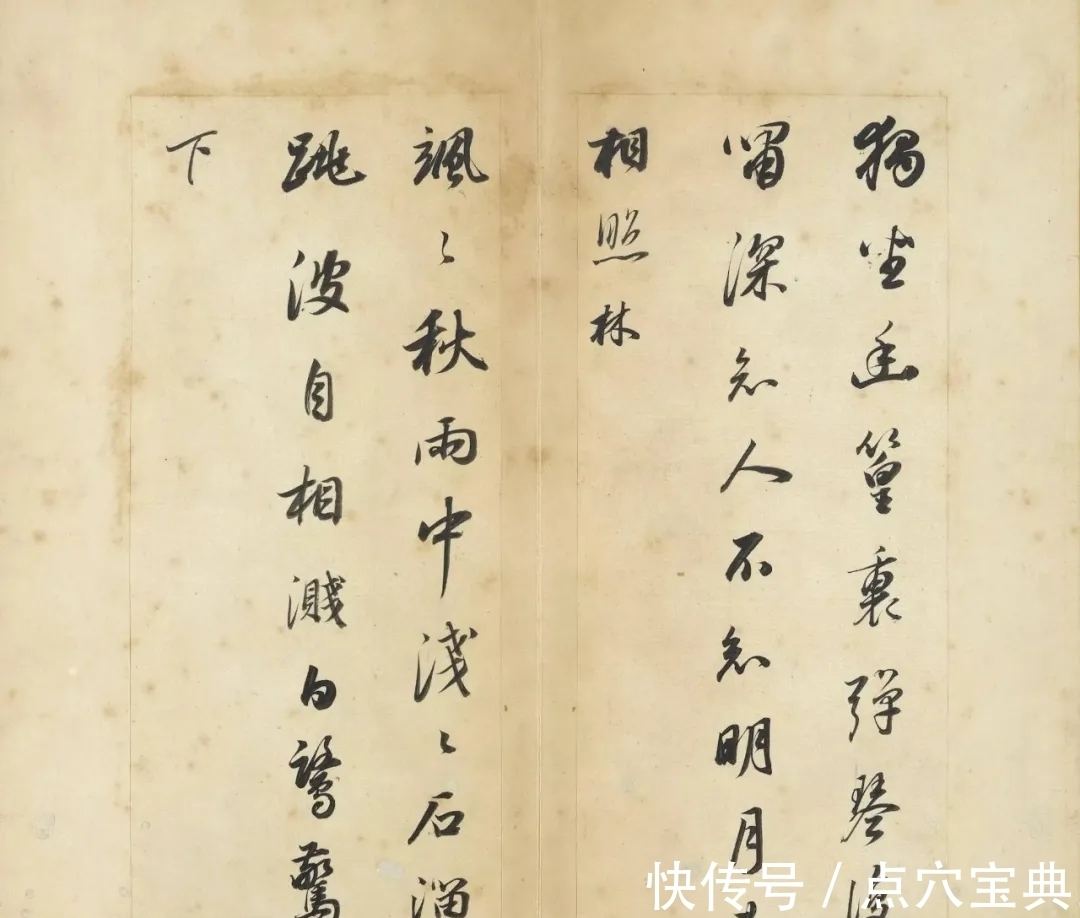 獨坐幽篁裏彈琴
嘯深知人不知明月
相照林
颯々秋雨中淺々石溜
跳波自相濺白鷺驚
下
快传号 / 点穴宝典